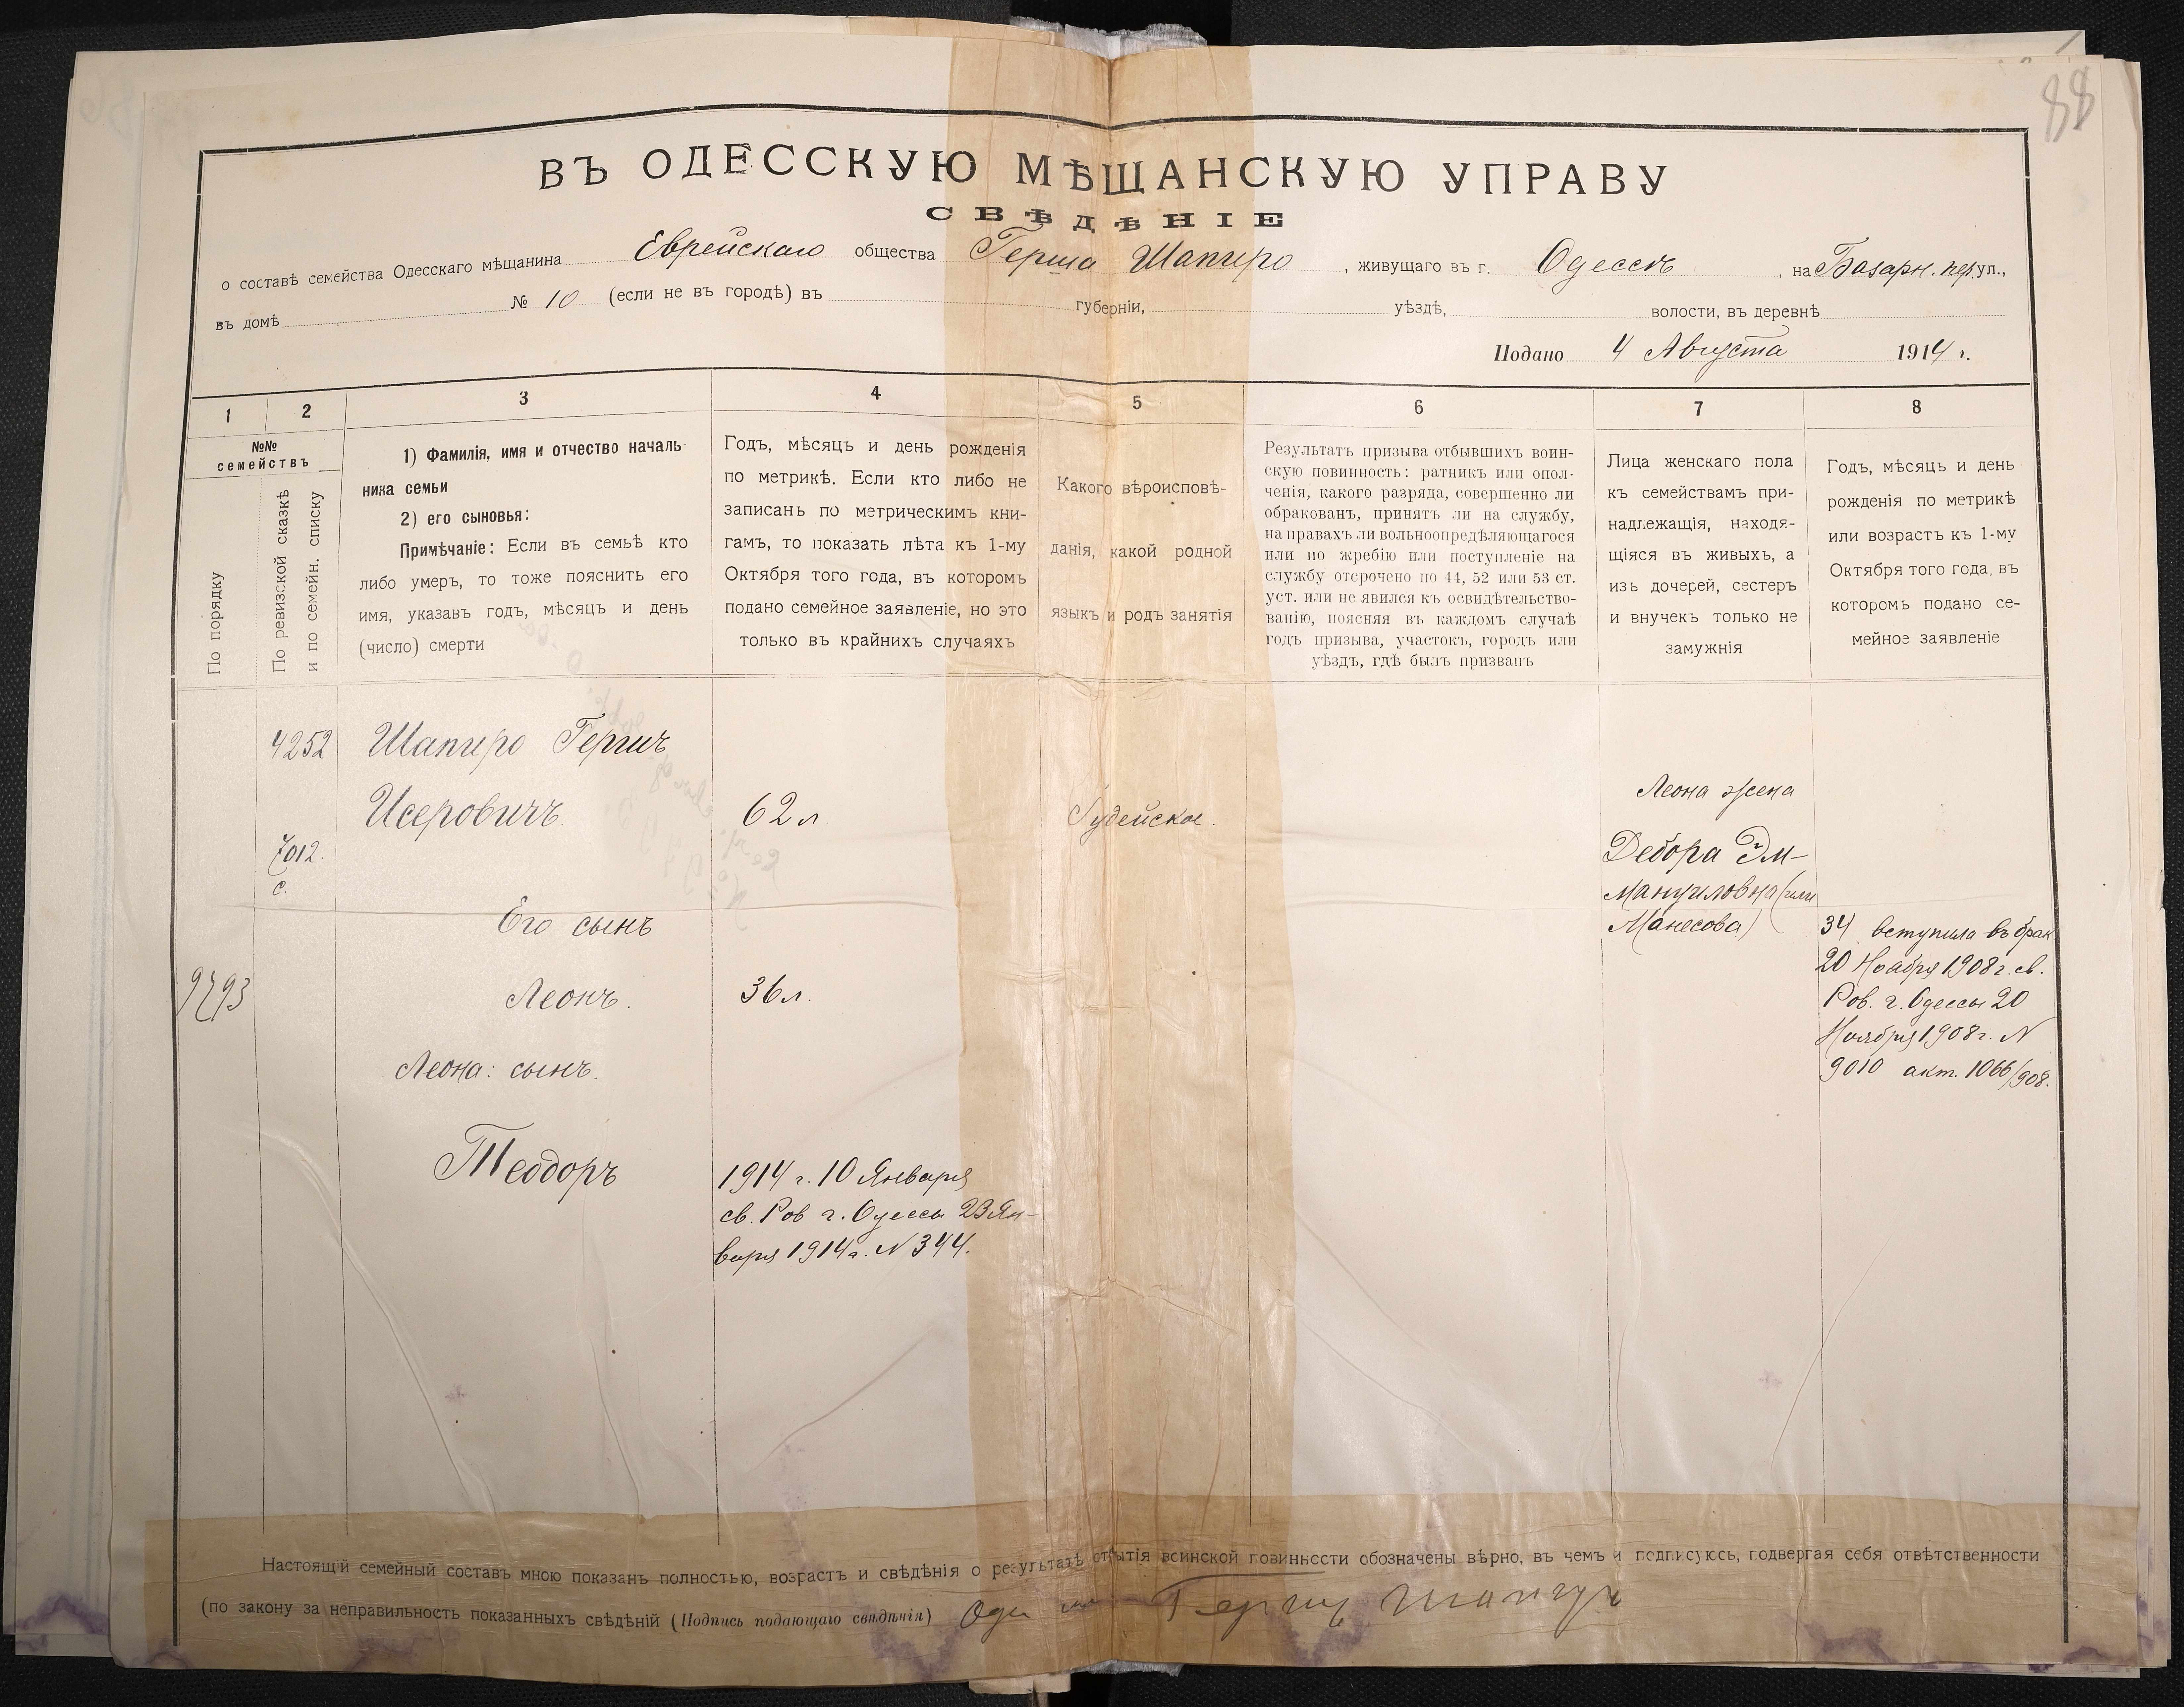 88
ВЪ ОДЕССКУЮ МѢЩАНСКУЮ УПРАВУ
СВѢДѢНІЕ
о составѣ семейства Одесскаго мѣщанина Еврейскаго общества Герша Шапиро, живущаго въ г. Одессѣ, на Базарн. пер. ул.,
въ домѣ № 10 (если не въ городѣ) въ губерніи, уѣздѣ, волости, въ деревнѣ
Подано 4 Августа 1914 г.
1
2
3
4
5
6
7
8
№№
семействъ
По порядку
По ревизской сказкѣ
и по семейн. списку
1) Фамилія, имя и отчество началь-
ника семьи
2) его сыновья:
Примѣчаніе: Если въ семьѣ кто
либо умеръ, то тоже пояснить его
имя, указавъ годъ, мѣсяцъ и день
(число) смерти
Годъ, мѣсяцъ и день рожденія
по метрикѣ. Если кто либо не
записанъ по метрическимъ кни-
гамъ, то показать лѣта къ 1-му
Октября того года, въ которомъ
подано семейное заявленіе, но это
только въ крайнихъ случаяхъ
Какого вѣроисповѣ-
данія, какой родной
языкъ и родъ занятія
Результатъ призыва отбывшихъ воин-
скую повинность: ратникъ или опол-
ченія, какого разряда, совершенно ли
обракованъ, принятъ ли на службу,
на правахъ ли вольноопредѣляющагося
или по жребію или поступленіе на
службу отсрочено по 44, 52 или 53 ст.
уст. или не явился къ освидѣтельство-
ванію, поясняя въ каждомъ случаѣ
годъ призыва, участокъ, городъ или
уѣздъ, гдѣ былъ призванъ
Лица женскаго пола
къ семействамъ при-
надлежащія, находя-
щіяся въ живыхъ, а
изъ дочерей, сестеръ
и внучекъ только не
замужнія
Годъ, мѣсяцъ и день
рожденія по метрикѣ
или возрастъ къ 1-му
Октября того года, въ
которомъ подано се-
мейное заявленіе
4252 Шапиро Гершъ
Исеровичъ. 62 л. Іудейское.
7012.
с.
Его сынъ
9793 Леонъ. 36 л.
Леона: сынъ.
Теодоръ
1914 г. 10 Января
св. Рав г. Одессы 23 Ян-
варя 1914 г. N 344.
Леона жена
Дебора Эм-
мануиловна (или
Манесова)
34 вступила въ брак
20 Ноября 1908 г. св.
Рав. г. Одессы 20
Ноября 1908 г. N
9010 акт. 1066/908.
Настоящій семейный составъ мною показанъ полностью, возрастъ и свѣдѣнія о результатѣ отбытія воинской повинности обозначены вѣрно, въ чемъ и подписуюсь, подвергая себя отвѣтственности
(по закону за неправильность показанныхъ свѣдѣній (Подпись подающаго свѣдѣнія) Герш Шапиро